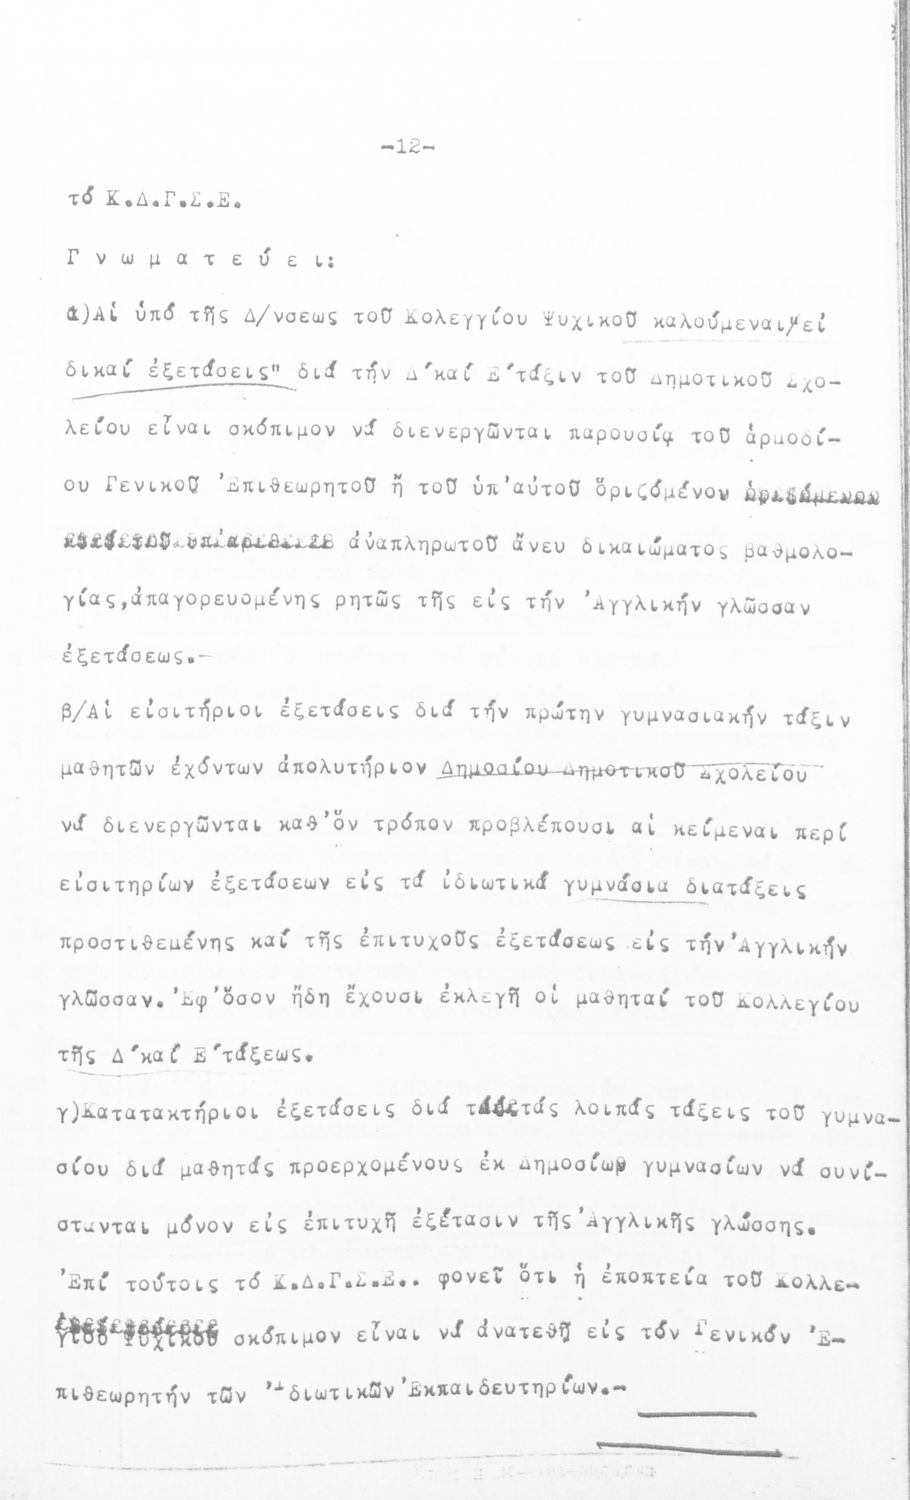 -12-
τό Κ.Δ.Γ.Σ.Ε.
Γ ν ω μ α τ ε ύ ε ι:
α)Αἱ ὑπό τῆς Δ/νσεως τοῦ Κολεγγίου Ψυχικοῦ καλούμεναι"εἰ
δικαί ἐξετάσεις" διά τήν Δ΄καί Ε΄τάξιν τοῦ Δημοτικοῦ Σχο-
λείου εἶναι σκόπιμον νά διενεργῶνται παρουσίᾳ τοῦ ἁρμοδί-
ου Γενικοῦ Ἐπιθεωρητοῦ ἤ τοῦ ὑπ'αὐτοῦ ὅριζόμένου
ἀναπληρωτοῦ ἄνευ δικαιώματος βαθμολο-
γίας,ἀπαγορευομένης ρητῶς τῆς εἰς τήν Ἀγγλικήν γλῶσσαν
ἐξετάσεως.-
β/Αἱ εἰσιτήριοι ἐξετάσεις διά τήν πρώτην γυμνασιακήν τάξιν
μαθητῶν ἐχόντων ἀπολυτήριον Δημοσίου Δημοτικοῦ Σχολείου
νά διενεργῶνται καθ'ὅν τρόπον προβλέπουσι αἱ κείμεναι περί
εἰσιτηρίων ἐξετάσεων εἰς τά ἰδιωτικά γυμνάσια διατάξεις
προστιθεμένης καί τῆς ἐπιτυχοῦς ἐξετάσεως εἰς τήν Ἀγγλικήν
γλῶσσαν.Ἐφ'ὅσον ἤδη ἔχουσι ἐκλεγῆ οἱ μαθηταί τοῦ Κολλεγίου
τῆς Δ΄καί Ε΄τάξεως.
γ)Κατατακτήριοι ἐξετάσεις διά τάς λοιπάς τάξεις τοῦ γυμνα-
σίου διά μαθητάς προερχομένους ἐκ Δημοσίων γυμνασίων νά συνί-
στανται μόνον εἰς ἐπιτυχῆ ἐξέτασιν τῆς Ἀγγλικῆς γλώσσης.
Ἐπί τούτοις τό Κ.Δ.Γ.Σ.Ε.. φονεῖ ὅτι ἡ ἐποπτεία τοῦ Κολλε-
γίου Ψυχικοῦ σκόπιμον εἶναι νά ἀνατεθῆ εἰς τόν Γενικόν Ἐ-
πιθεωρητήν τῶν Ἰδιωτικῶν Ἐκπαιδευτηρίων.-